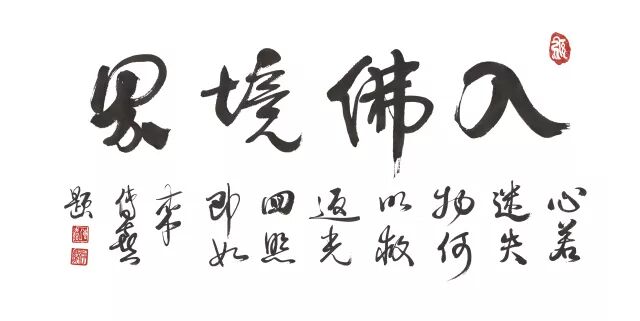 入佛境界
心若
迷失
物何
以救
返光
回照
即如
來
傳喜
題